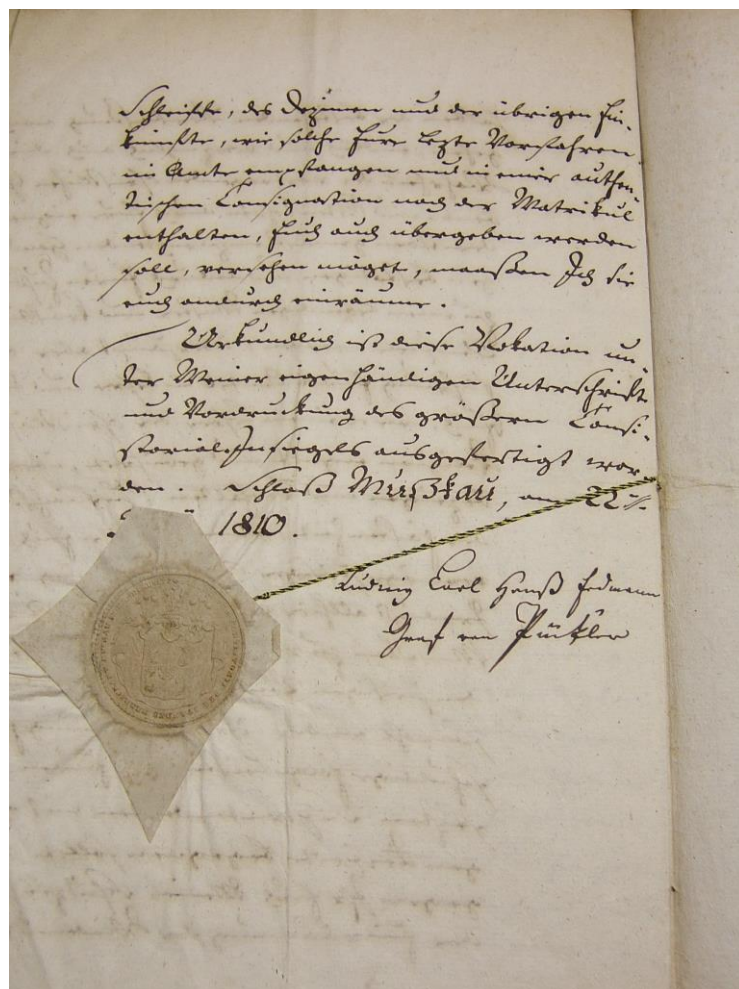 Schleiffe, des Dezimen und der übrigen Ein-
künfte, wie solche Eure lezte Vorfahren
im Amte empfangen und in einer authen-
tischen Consignation nach der Matrikul
enthalten, Euch auch übergeben werden
soll, versehen möget, maaßen Ich sie
euch andurch einräume.
Urkundlich ist diese Vokation un-
ter Meiner eigenhändigen Unterschrift
und Vordruckung des größern Consi-
storial-Insiegels ausgefertigt wor-
den. Schloß Mußkau, am 22
1810.
Ludwig Carl Hanß Erdmann
Graf von Pückler